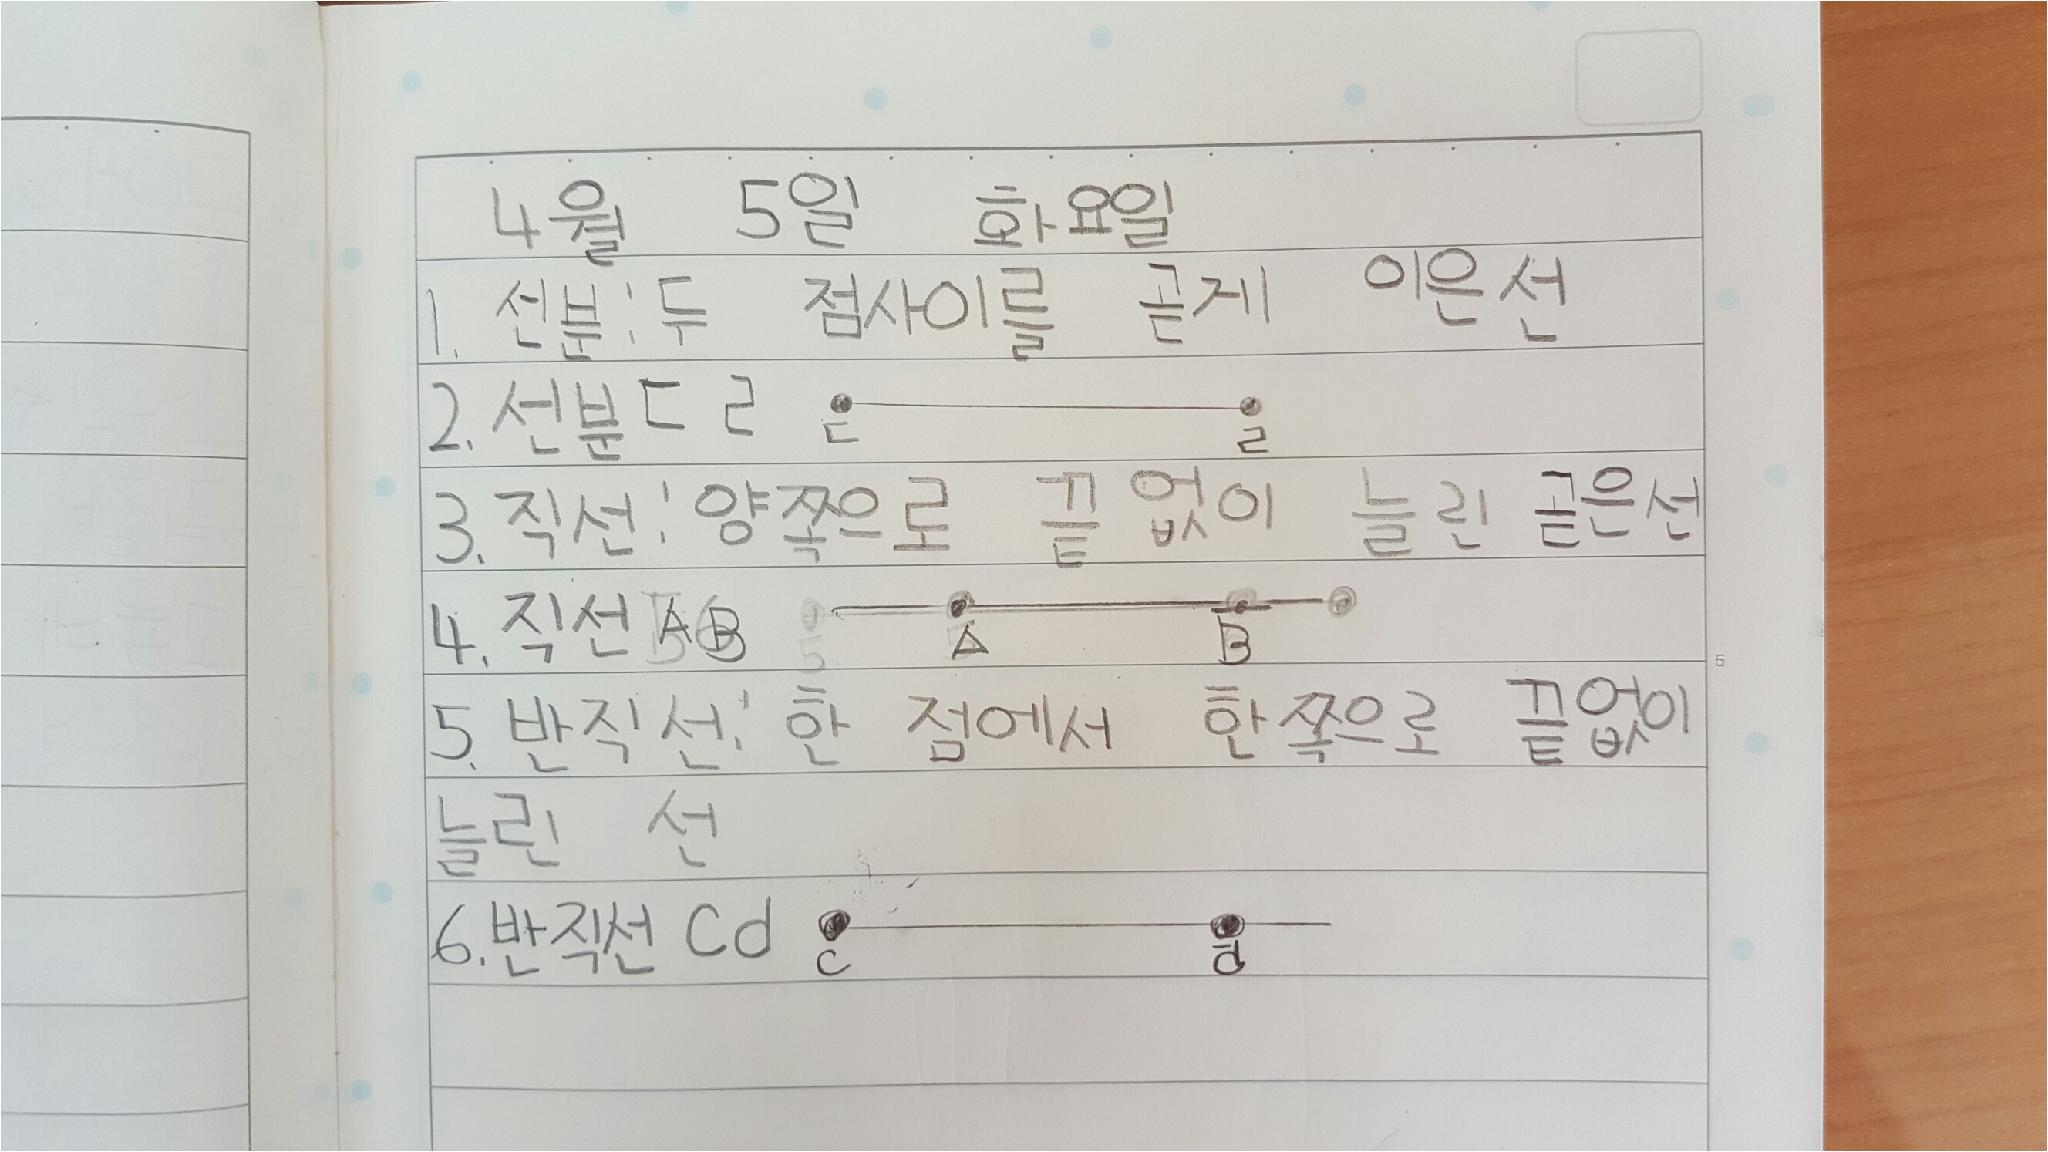 4월 5일 화요일
1. 선분: 두 점사이를 곧게 이은선
2. 선분 ㄷ ㄹ ㄷ ㄹ
3. 직선: 양쪽으로 끝없이 늘린 곧은선
4. 직선 AB A B
5
5. 반직선: 한 점에서 한쪽으로 끝없이
늘린 선
6. 반직선 Cd C d